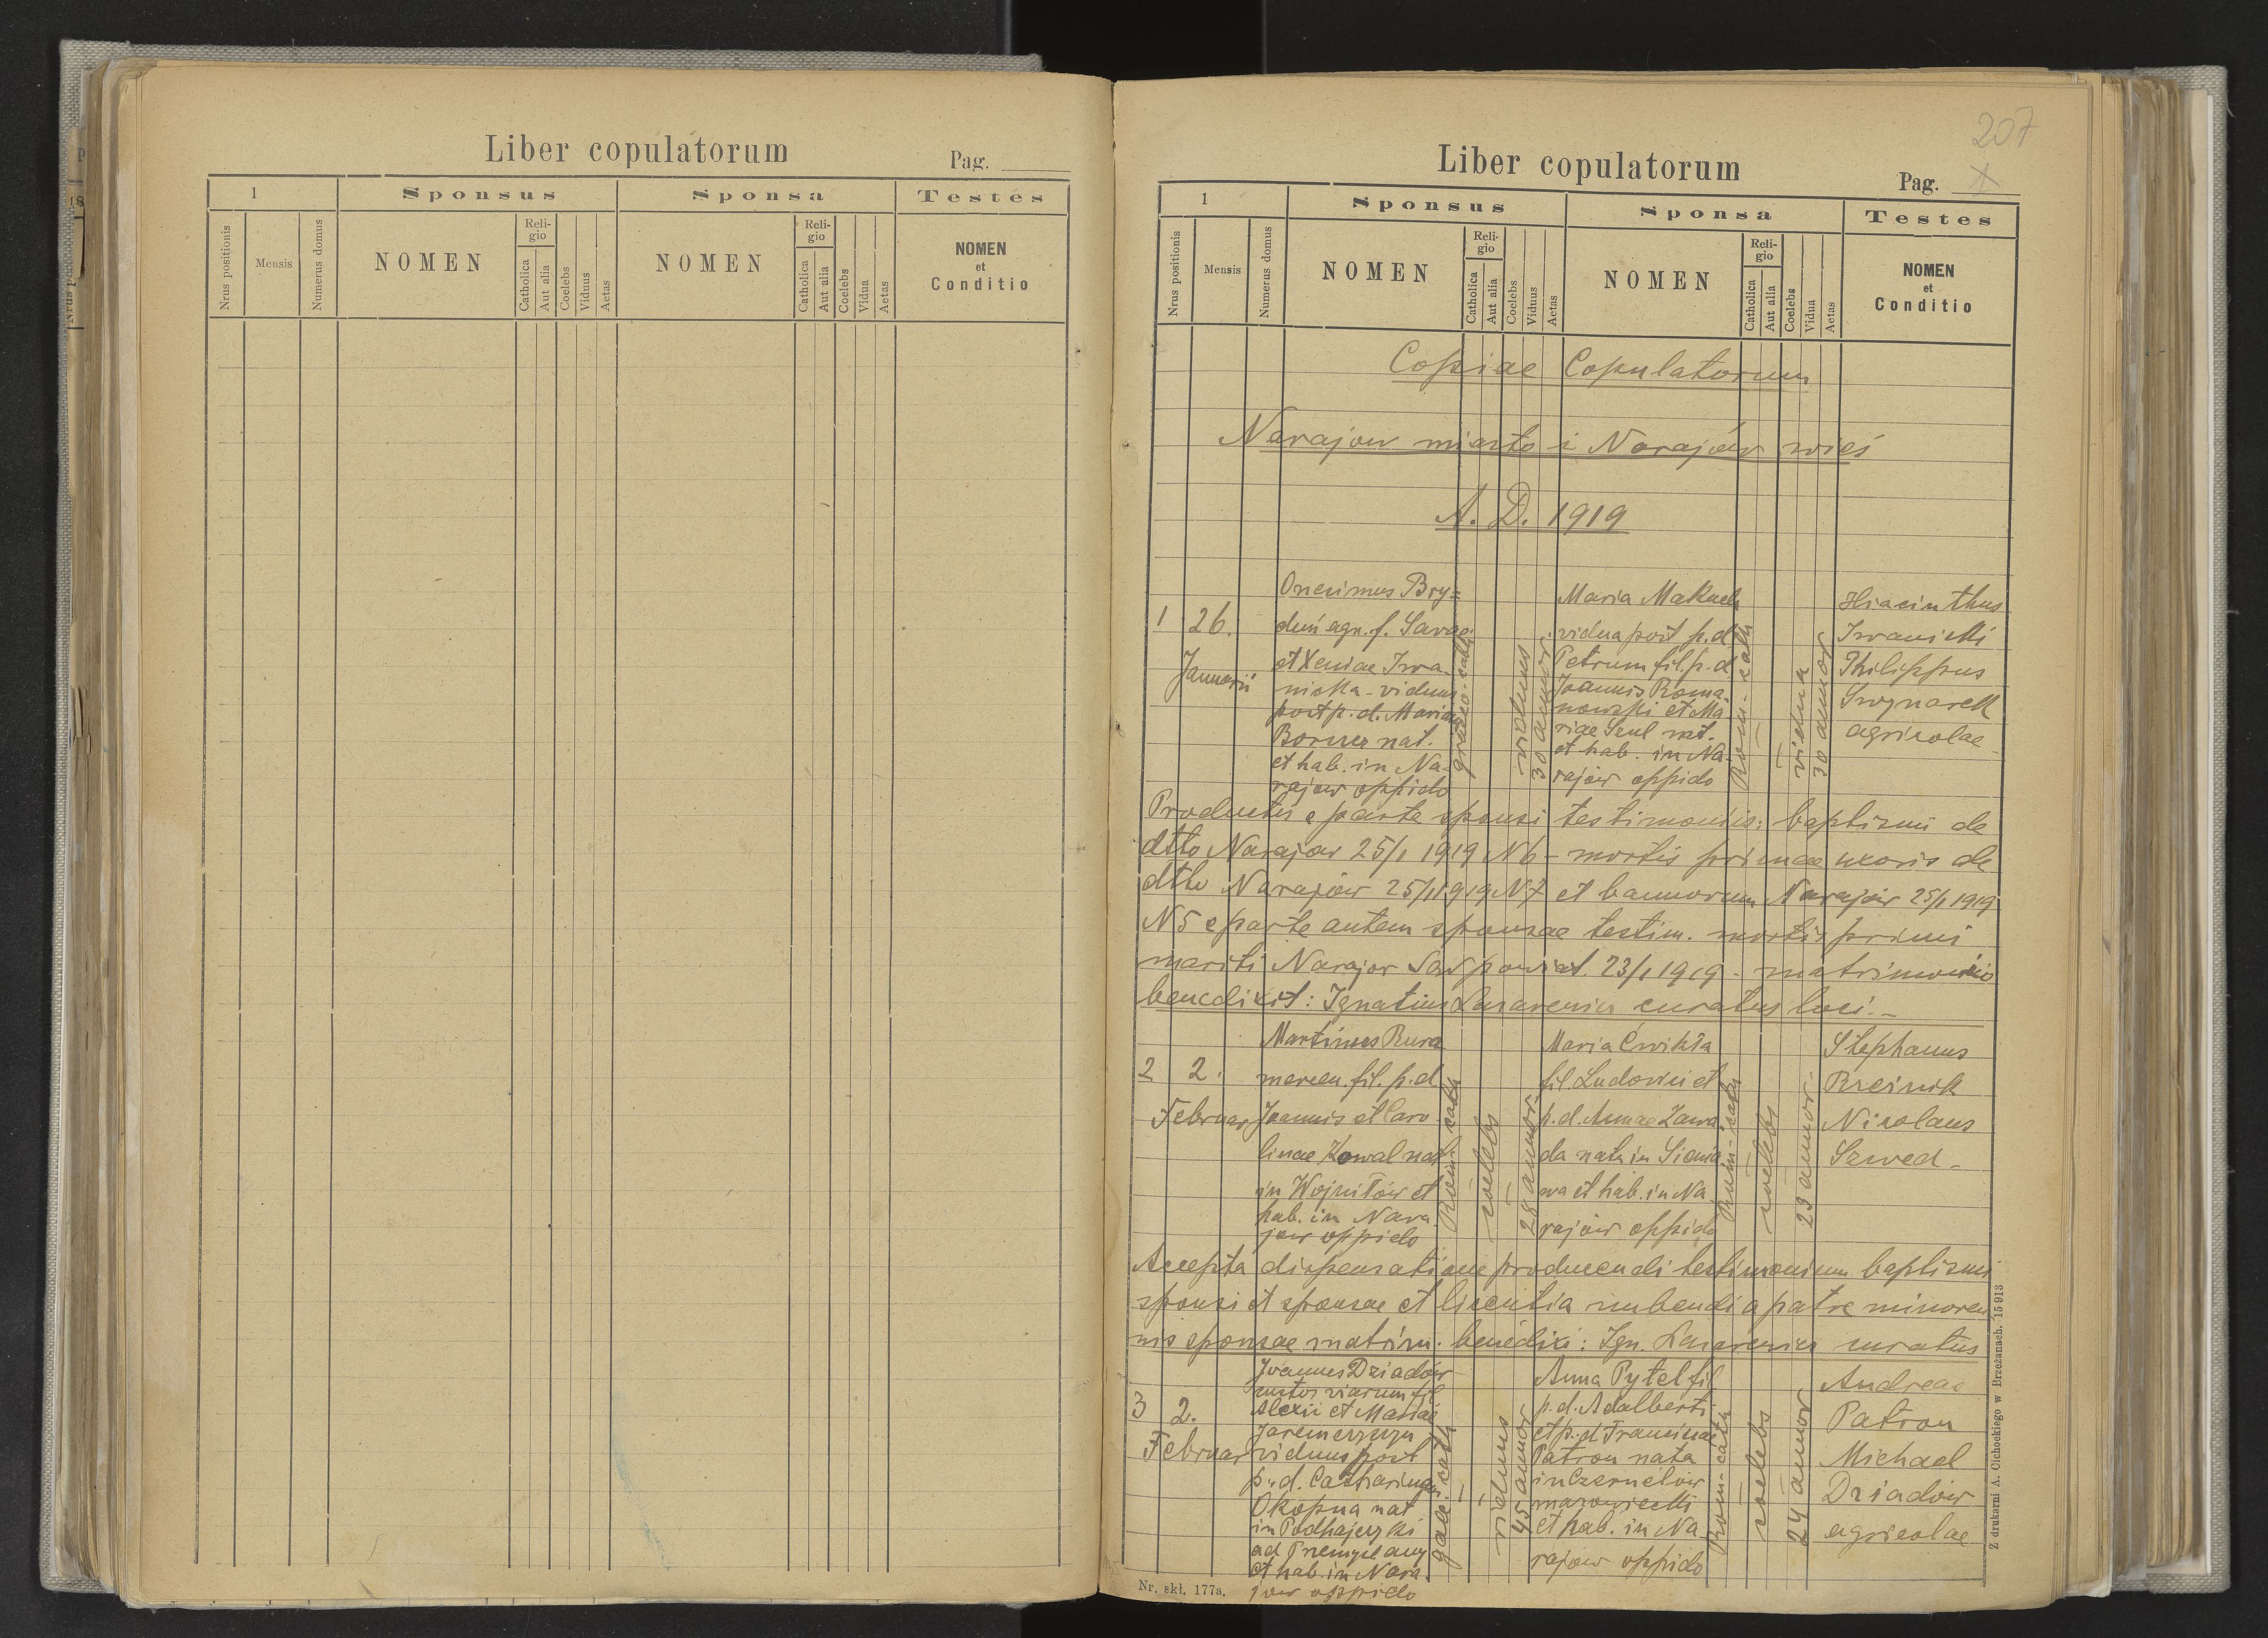 Liber copulatorum
Pag.
1
Sponsus
Sponsa
Testes
Nrus positionis
Mensis
Numerus domus
NOMEN
Religio
Catholica
Aut alia
Coelebs
Viduus
Aetas
NOMEN
Religio
Catholica
Aut alia
Coelebs
Vidua
Aetas
NOMEN
et
Conditio
207
Liber copulatorum
Pag.
1
Sponsus
Sponsa
Testes
Nrus positionis
Mensis
Numerus domus
NOMEN
Religio
Catholica
Aut alia
Coelebs
Viduus
Aetas
NOMEN
Religio
Catholica
Aut alia
Coelebs
Vidua
Aetas
NOMEN
et
Conditio
Copiae Copulatorum
Narajow miasto i Narajów wieś
A. D. 1919
1
26.
Januarii
Onesimus Bry=
deń agr. f. Savae
et Xeniae Iwa-
nicka - viduus
post p. d. Mariam
nat.
et hab. in Na-
rajow oppido
graeco-cath
viduus
30 annor.
Maria Makuch
vidua post p. d.
Petrum fil. p. d.
Joannis Roma-
nowski et Ma
riae Szul nat.
et hab. in Na-
rajów oppido
Rom-cath
vidua
30 annor
Hiacinthus
Iwanicki
Philippus
agricolae
Productis e parte sponsi testimoniis: baptismi de
dtto Narajow 25/1 1919 N6 - mortis primae uxoris de
dtto Narajów 25/1 1919 N7 et bannorum Narajów 25/1 1919
N5 e parte autem sponsae testim. mortis primi
mariti Narajow Sąd powiat. 23/1 1919 - matrimonio
benedixit: Ignatius curatus loci. -
2
2.
Februar
Martinus Bura
mercen. fil. p. d.
Joannis et Caro
linae Kowal nat
in et
hab. in Nara
jow oppido
Rom-cath
coelebs
28 annor.
Maria Ćwikła
fil Ludovici et
p. d. Annae Zawa
da nata in Sienia
wa et hab. in Na
rajów oppido
Rom-cath
coelebs
23 annor.
Stephanus
Nicolaus
Szwed -
Accepta dispensatione producendi testimonium baptismi
sponsi et sponsae et licentia nubendi a patre minoren
nis sponsae matrim. benedixi: Ign. curatus
3
2.
Februar
Joannes Dziadów
custos viarum fil
Alexii et Mariae
Jaremczyszyn
viduus post
p. d. Catharinam
Okopna nat
in Podhajczyki
ad Przemyślany
et hab. in Nara
jow oppido
viduus
45 annor
Anna Pytel fil
p. d. Adalberti
et p. d. Franciscae
Patron nata
in Czernelów
mazowiecki
et hab. in Na
rajow oppido
Rom-cath
coelebs
24 annor
Andreas
Patron
Michael
Dziadów
agricolae
Nr. skł. 177a.
Z drukarni A. Cichockiego w Brzeżanach. 15913